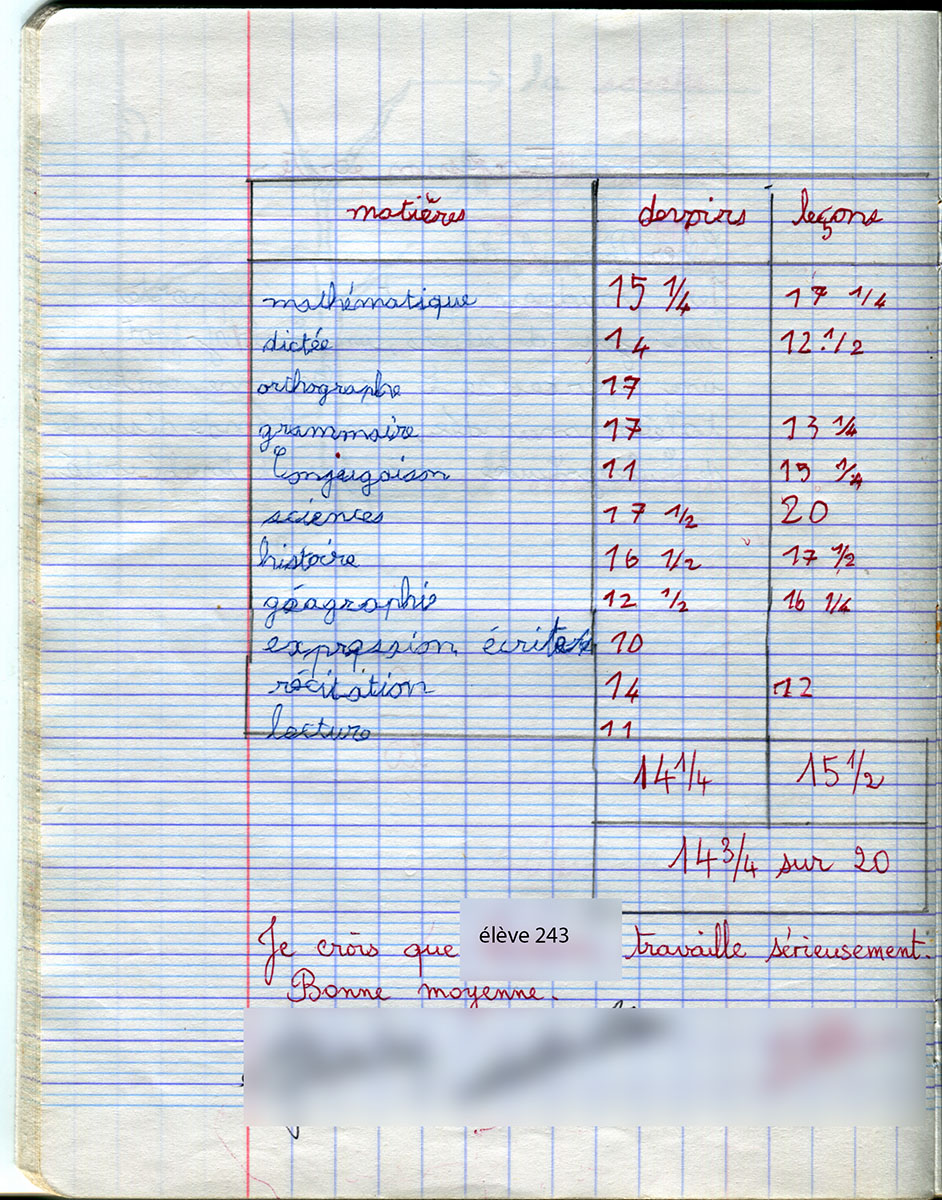 matières devoirs leçons
mathématique 15 1/4 17 1/4
dictée 14 12 1/2
orthographe 17
grammaire 17 13 1/4
Conjugaison 11 15 1/4
sciences 17 1/2 20
histoire 16 1/2 17 1/2
géographie 12 1/2 16 1/4
expression écrite 10
récitation 14 12
lecture 11
14 1/4 15 1/2
14 3/4 sur 20
Je crois que élève 243 travaille sérieusement.
Bonne moyenne.